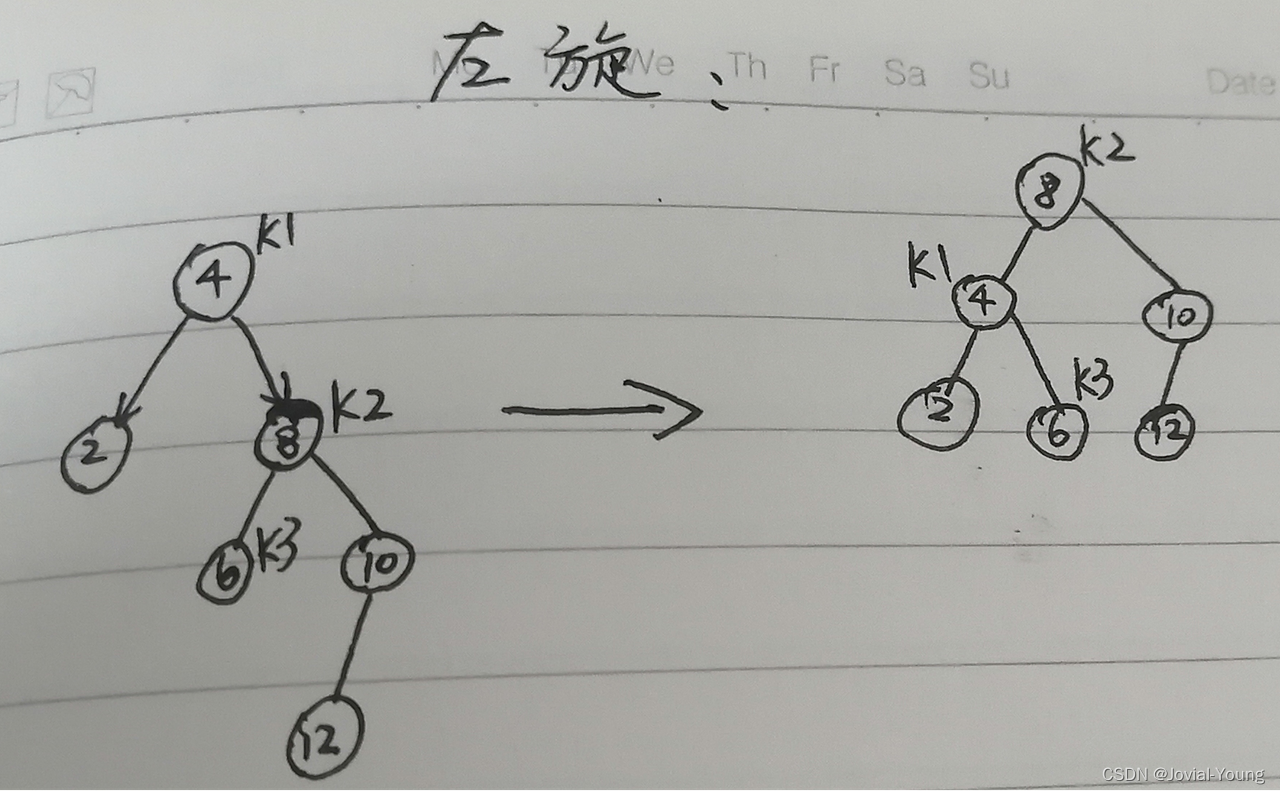 左旋:
Mo Tu We Th Fr Sa Su
Date
K2
8
K1
K1
4
4
10
K3
2
6
12
K2
2
8
K3
6
10
12
CSDN @Jovial-Young